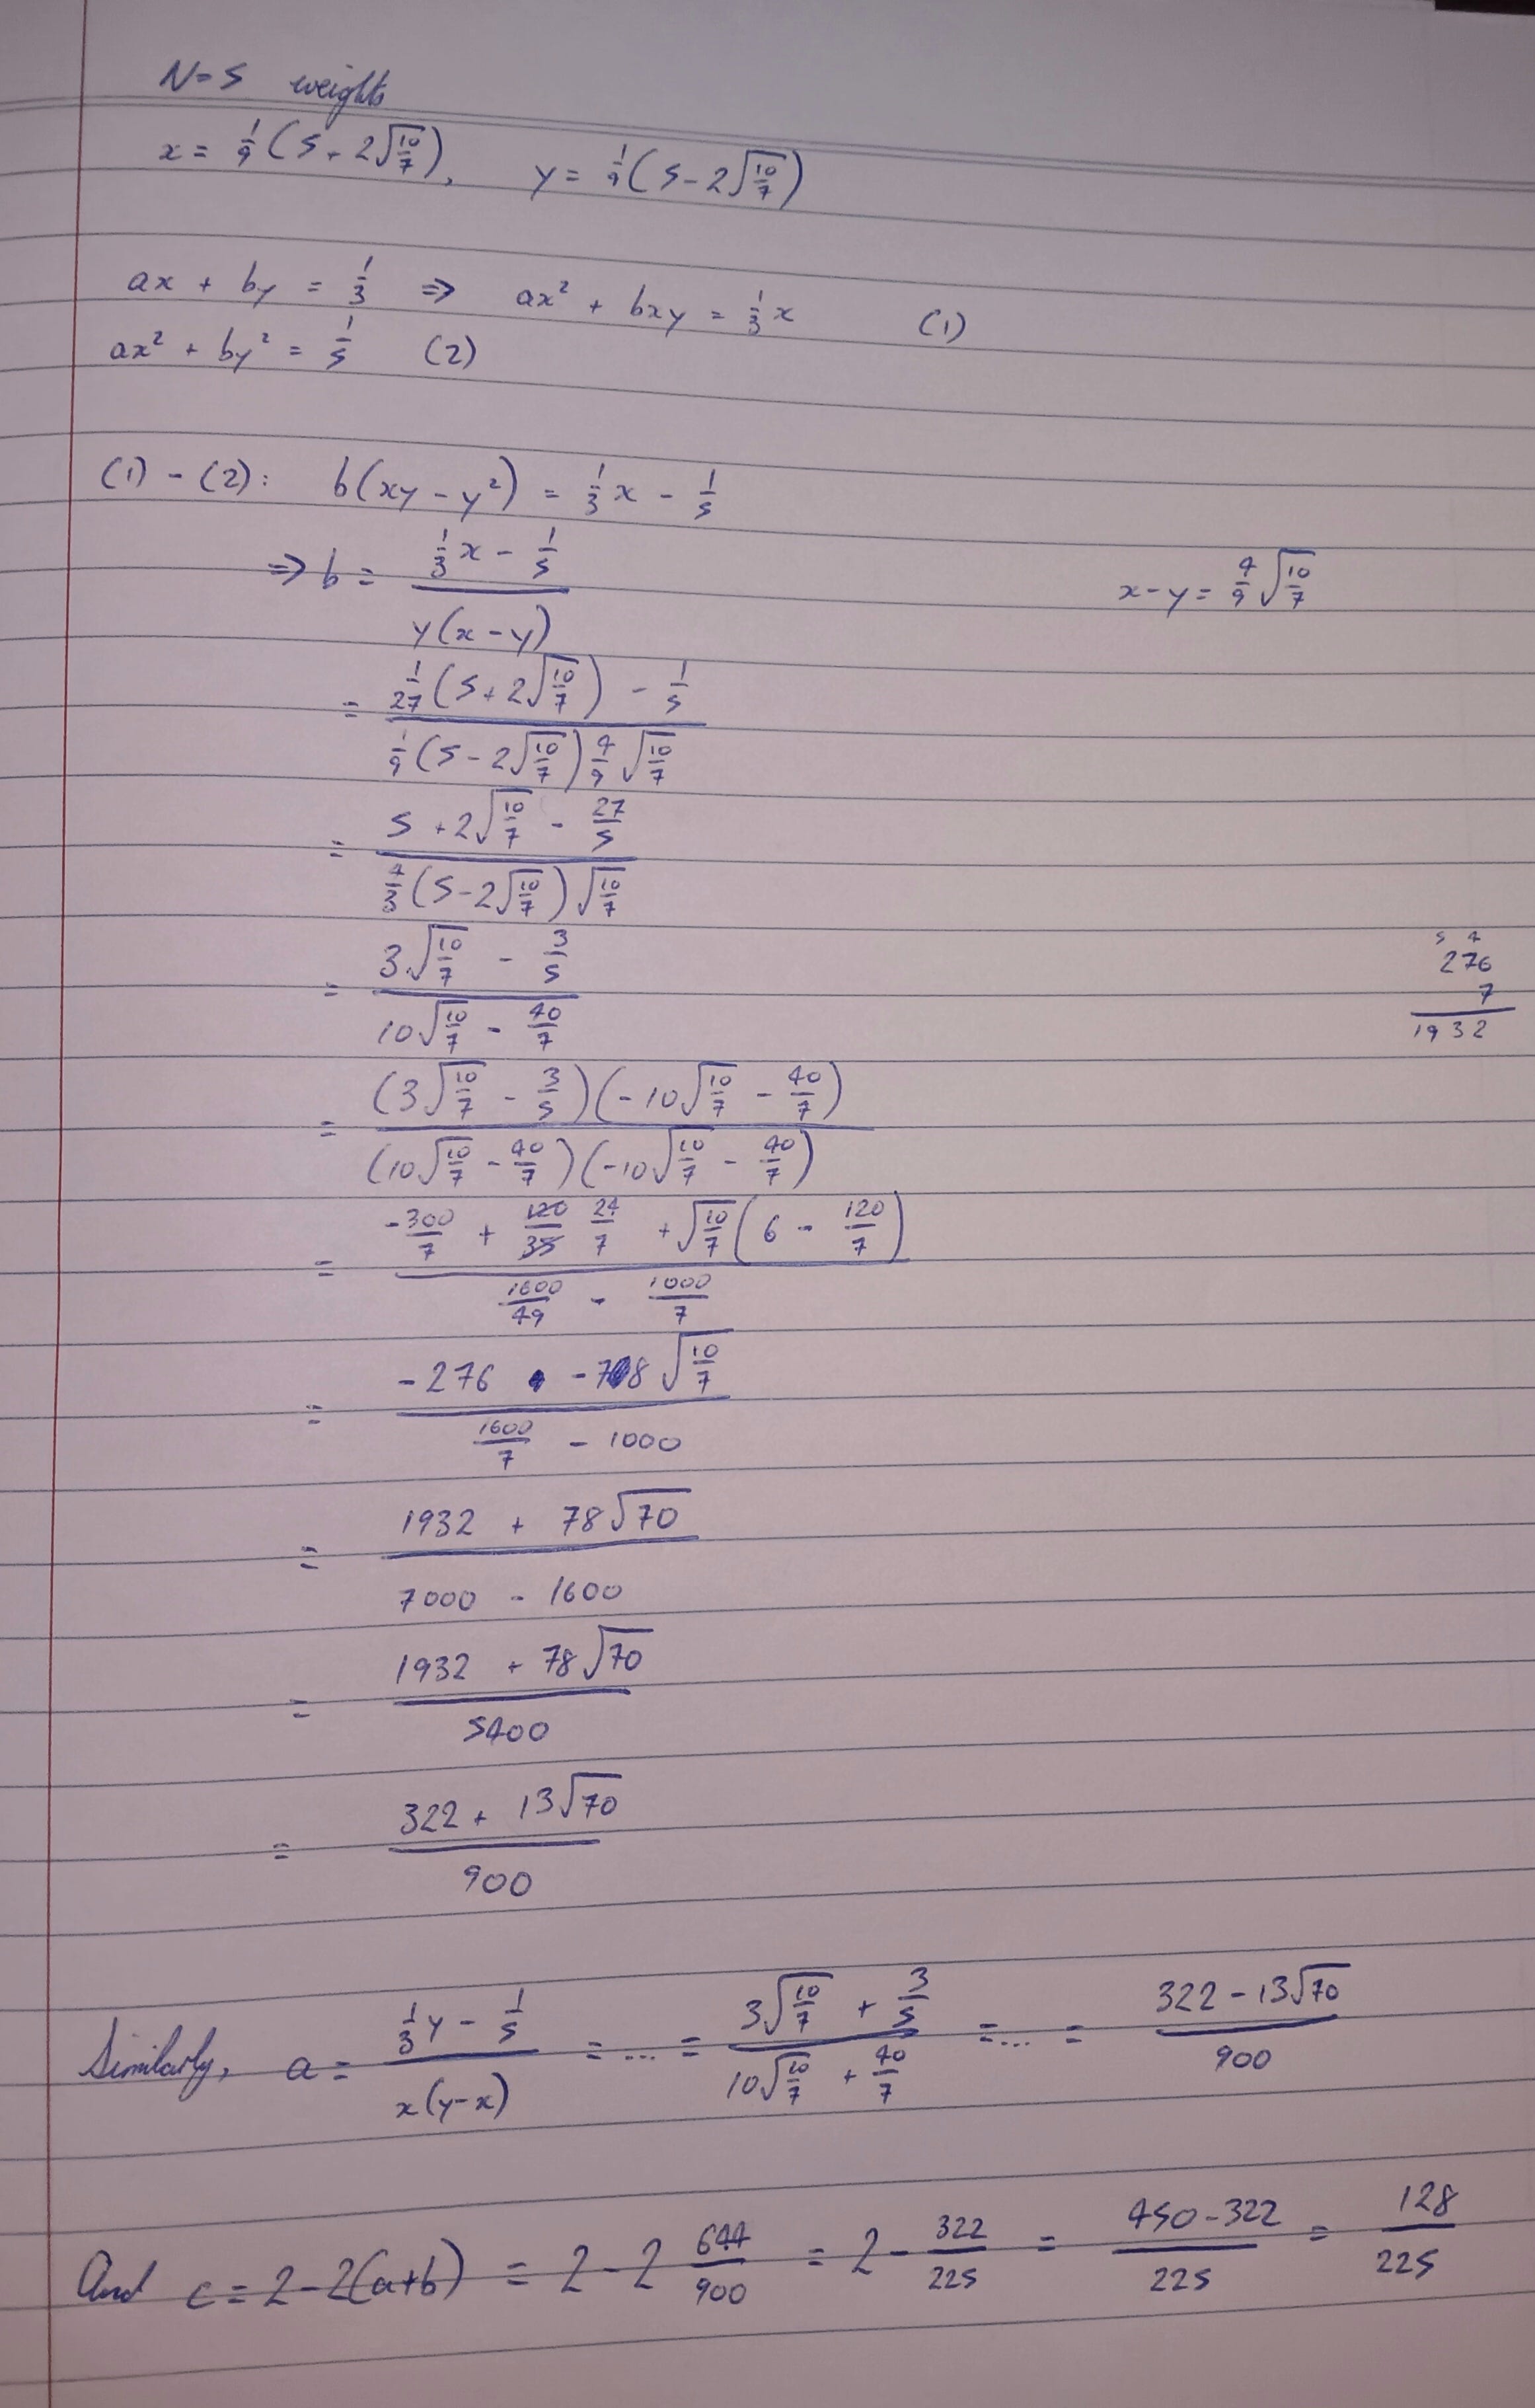 N=5 weights
x = 1/9 (5+2√(10/7)), y = 1/9 (5-2√(10/7))
ax + by = 1/3 ⇒ ax² + bxy = 1/3 x (1)
ax² + by² = 1/5 (2)
(1) - (2): b(xy - y²) = 1/3 x - 1/5
⇒ b = (1/3 x - 1/5) / (y(x-y))
x-y = 4/9 √(10/7)
= (1/27 (5+2√(10/7)) - 1/5) / (1/9 (5-2√(10/7)) 4/9 √(10/7))
= (5+2√(10/7) - 27/5) / (4/3 (5-2√(10/7)) √(10/7))
= (3√(10/7) - 3/5) / (10√(10/7) - 40/7)
5 4
276
7
1932
= ((3√(10/7) - 3/5)(-10√(10/7) - 40/7)) / ((10√(10/7) - 40/7)(-10√(10/7) - 40/7))
= (-300/7 + 24/7 + √(10/7) (6 - 120/7)) / (1600/49 - 1000/7)
= (-276 - 78√(10/7)) / (1600/7 - 1000)
= (1932 + 78√70) / (7000 - 1600)
= (1932 + 78√70) / 5400
= (322 + 13√70) / 900
Similarly, a = (1/3 y - 1/5) / (x(y-x)) = ... = (3√(10/7) + 3/5) / (10√(10/7) + 40/7) = ... = (322 - 13√70) / 900
And c = 2-2(a+b) = 2-2 644/900 = 2 - 322/225 = (450-322)/225 = 128/225